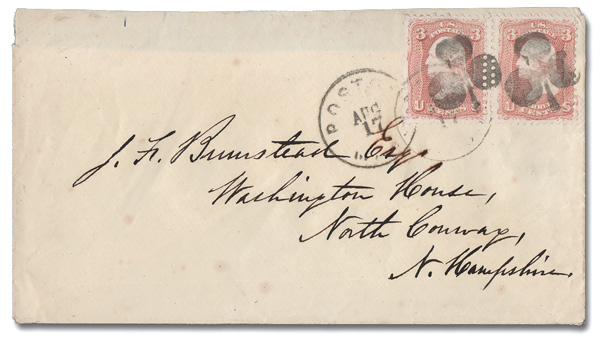 3 U.S. POSTAGE 3
U THREE CENTS S
3 U.S. POSTAGE 3
U CENTS S
BOSTON
AUG
17
17
J. F. Bumstead Esq
Washington House,
North Conway,
N. Hampshire.